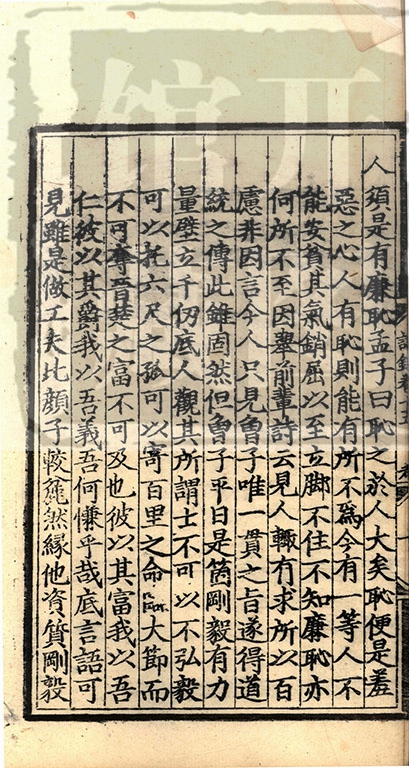 人須是有廉恥孟子曰恥之於人大矣恥便是羞
惡之心人有恥則能有所不爲今有一等人不
能安貧其氣銷屈以至立脚不住不知廉恥亦
何所不至因舉前輩詩云見人輙有求所以百
慮非因言今人只見曾子唯一貫之旨遂得道
統之傳此雖固然但曾子平日是箇剛毅有力
量壁立千仞底人觀其所謂士不可以不弘毅
可以托六尺之孤可以寄百里之命臨大節而
不可奪晉楚之富不可及也彼以其富我以吾
仁彼以其爵我以吾義吾何慊乎哉底言語可
見雖是做工夫比顔子較麄然緣他資質剛毅